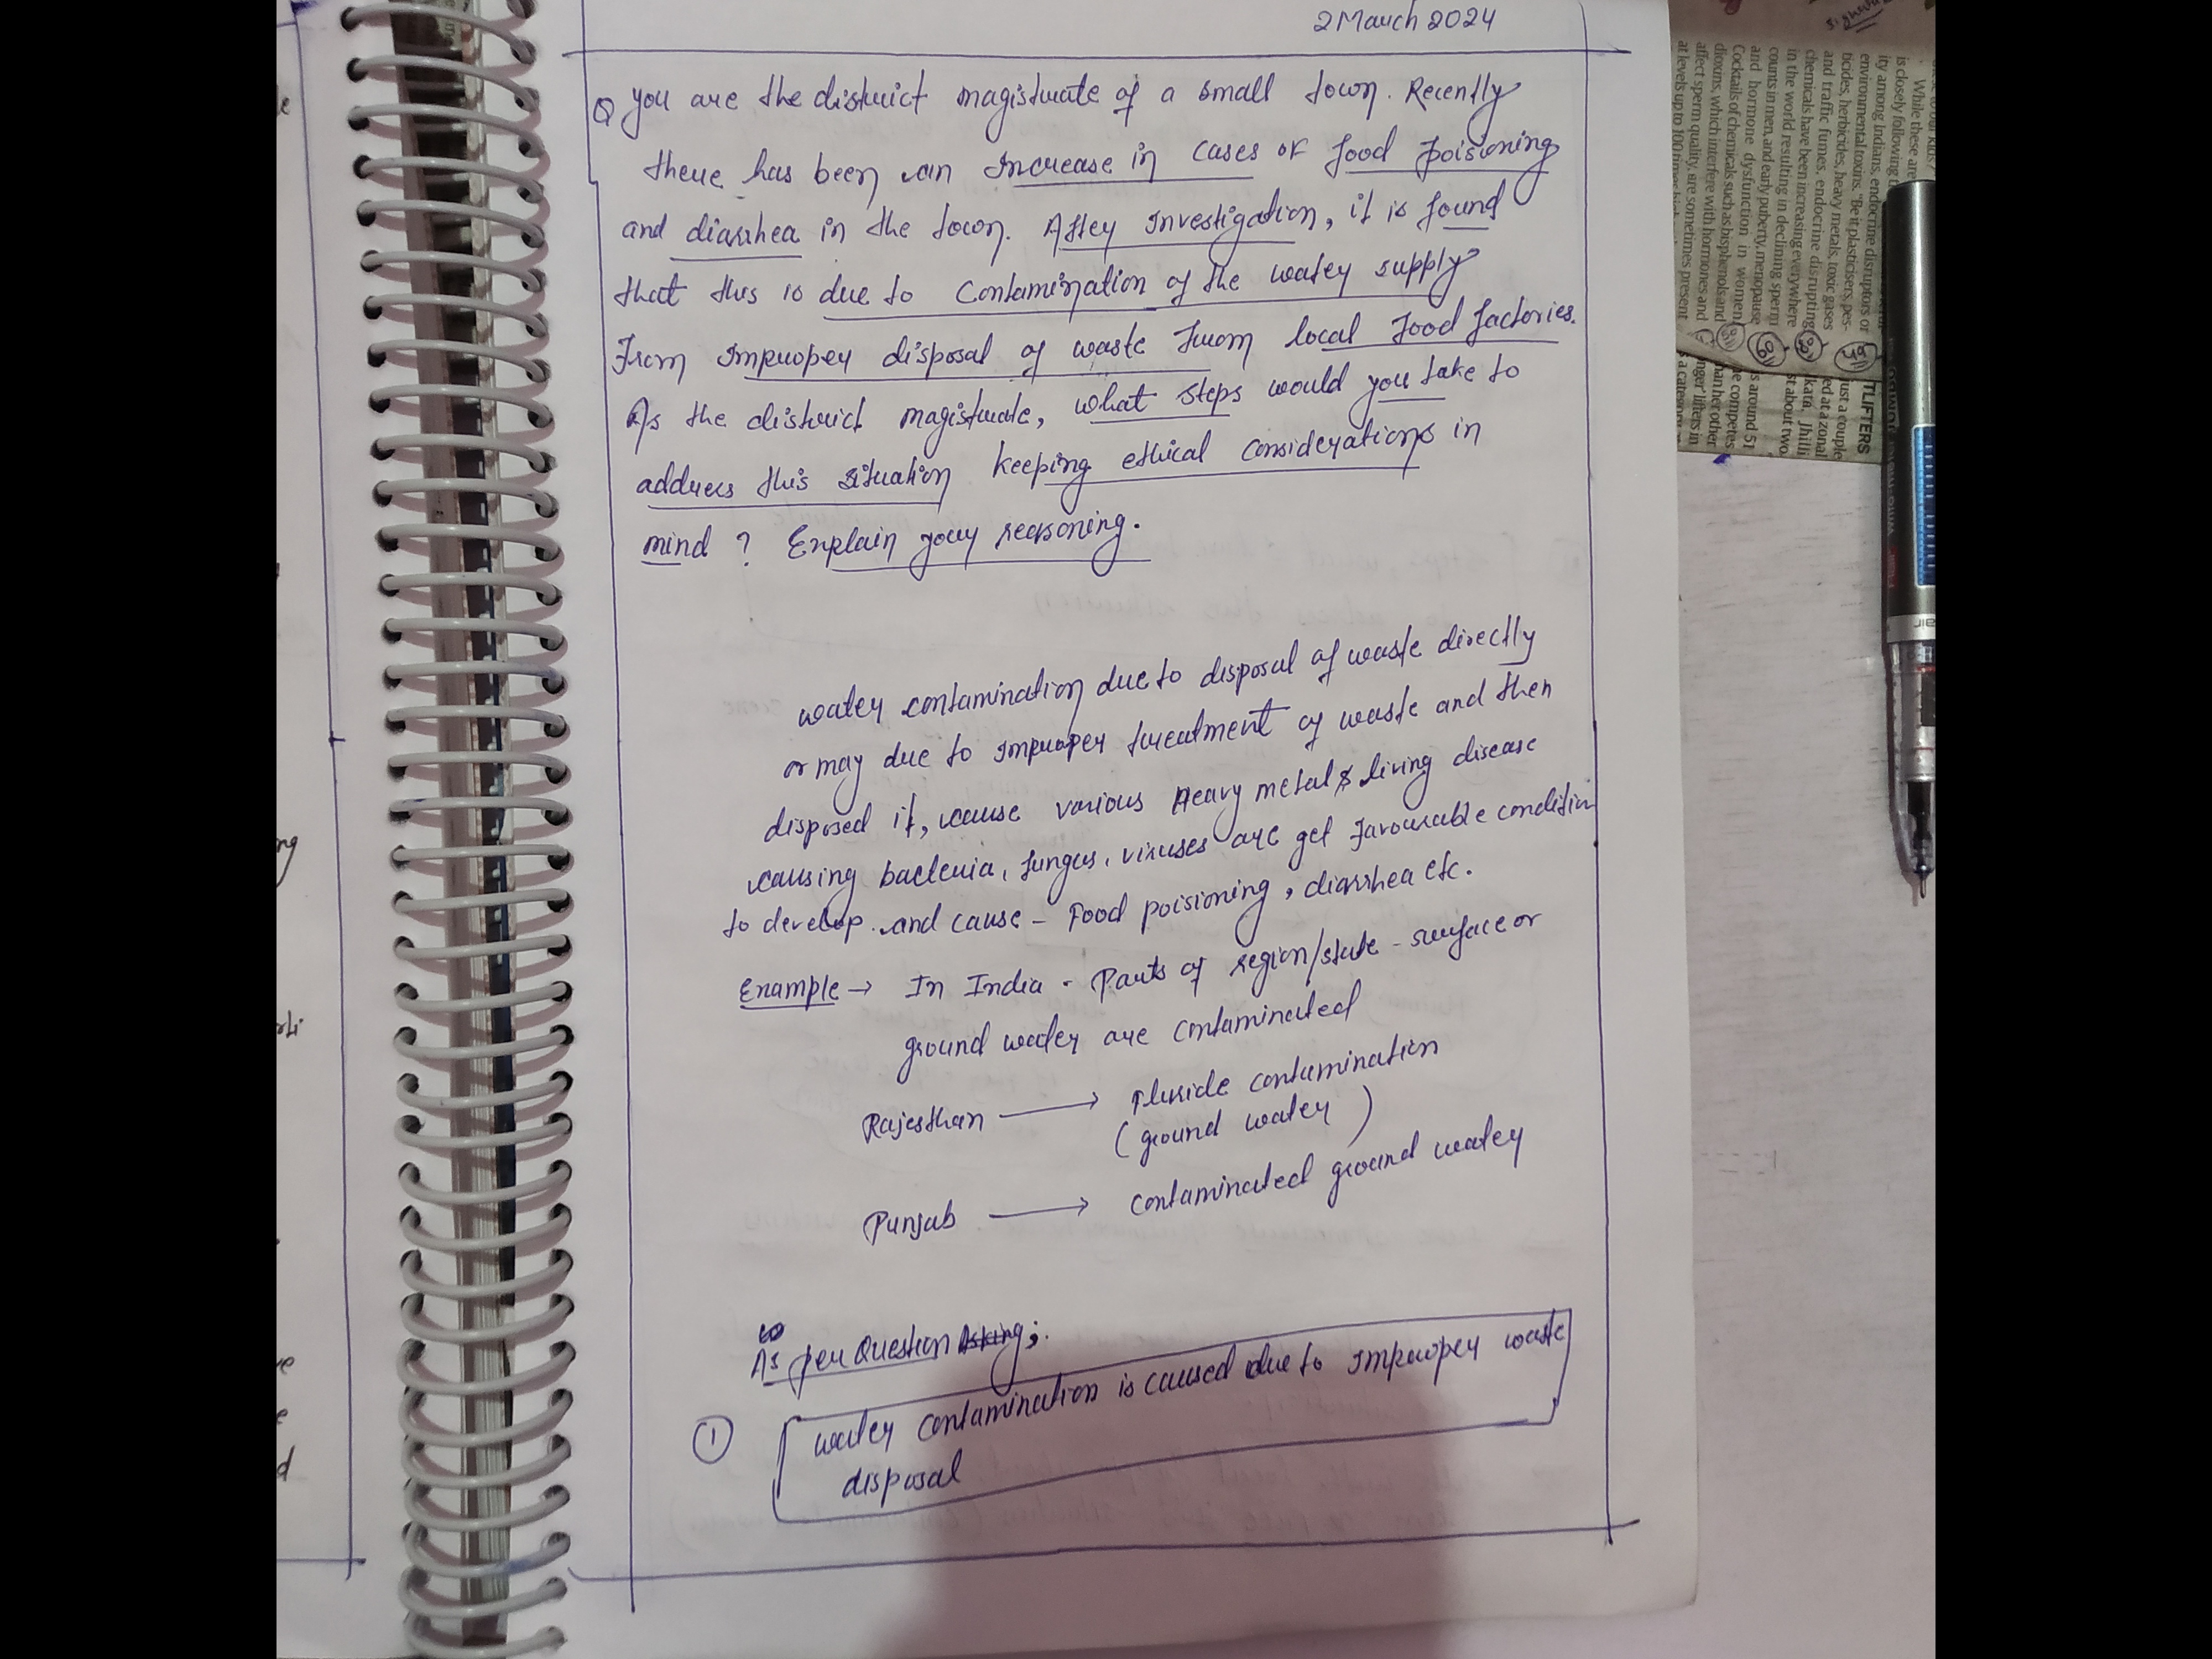 2 March 2024
Q you are the district magistrate of a small town. Recently
there has been an Increase in cases of food poisioning
and diarrhea in the town. After Investigation, it is found
that this is due to contamination of the water supply
From Improper disposal of waste from local food factories.
As the district magistrate, what steps would you take to
address this situation keeping ethical considerations in
mind ? Explain your reasoning.
water contamination due to disposal of waste directly
or may due to Improper treatment of waste and then
disposed it, cause various Heavy metal & living disease
causing bacteria, fungus, viruses are get favourable condition
to develop. and cause - Food poisioning, diarrhea etc.
Example → In India - Parts of region/state - surface or
ground water are contaminated
Rajesthan → Fluride contamination
(ground water)
Punjab → contaminated ground water
As per Question Asking;
1 water contamination is caused due to Improper waste
disposal
While these are
is closely following
ity among Indians, endocrine disruptors or
environmental toxins. "Be it plasticisers, pes-
ticides, herbicides, heavy metals, toxic gases
and traffic fumes, endocrine disrupting
chemicals have been increasing everywhere
in the world resulting in declining sperm
counts in men, and early puberty, menopause
and hormone dysfunction in women.
Cocktails of chemicals such as bisphenols and
dioxins, which interfere with hormones and
affect sperm quality, are sometimes present
at levels up to 100
TLIFTERS
just a couple
ed at a zonal
kata, Jhilli
st about two
s around 51
he competes
han her other
nger' lifters in
s a category